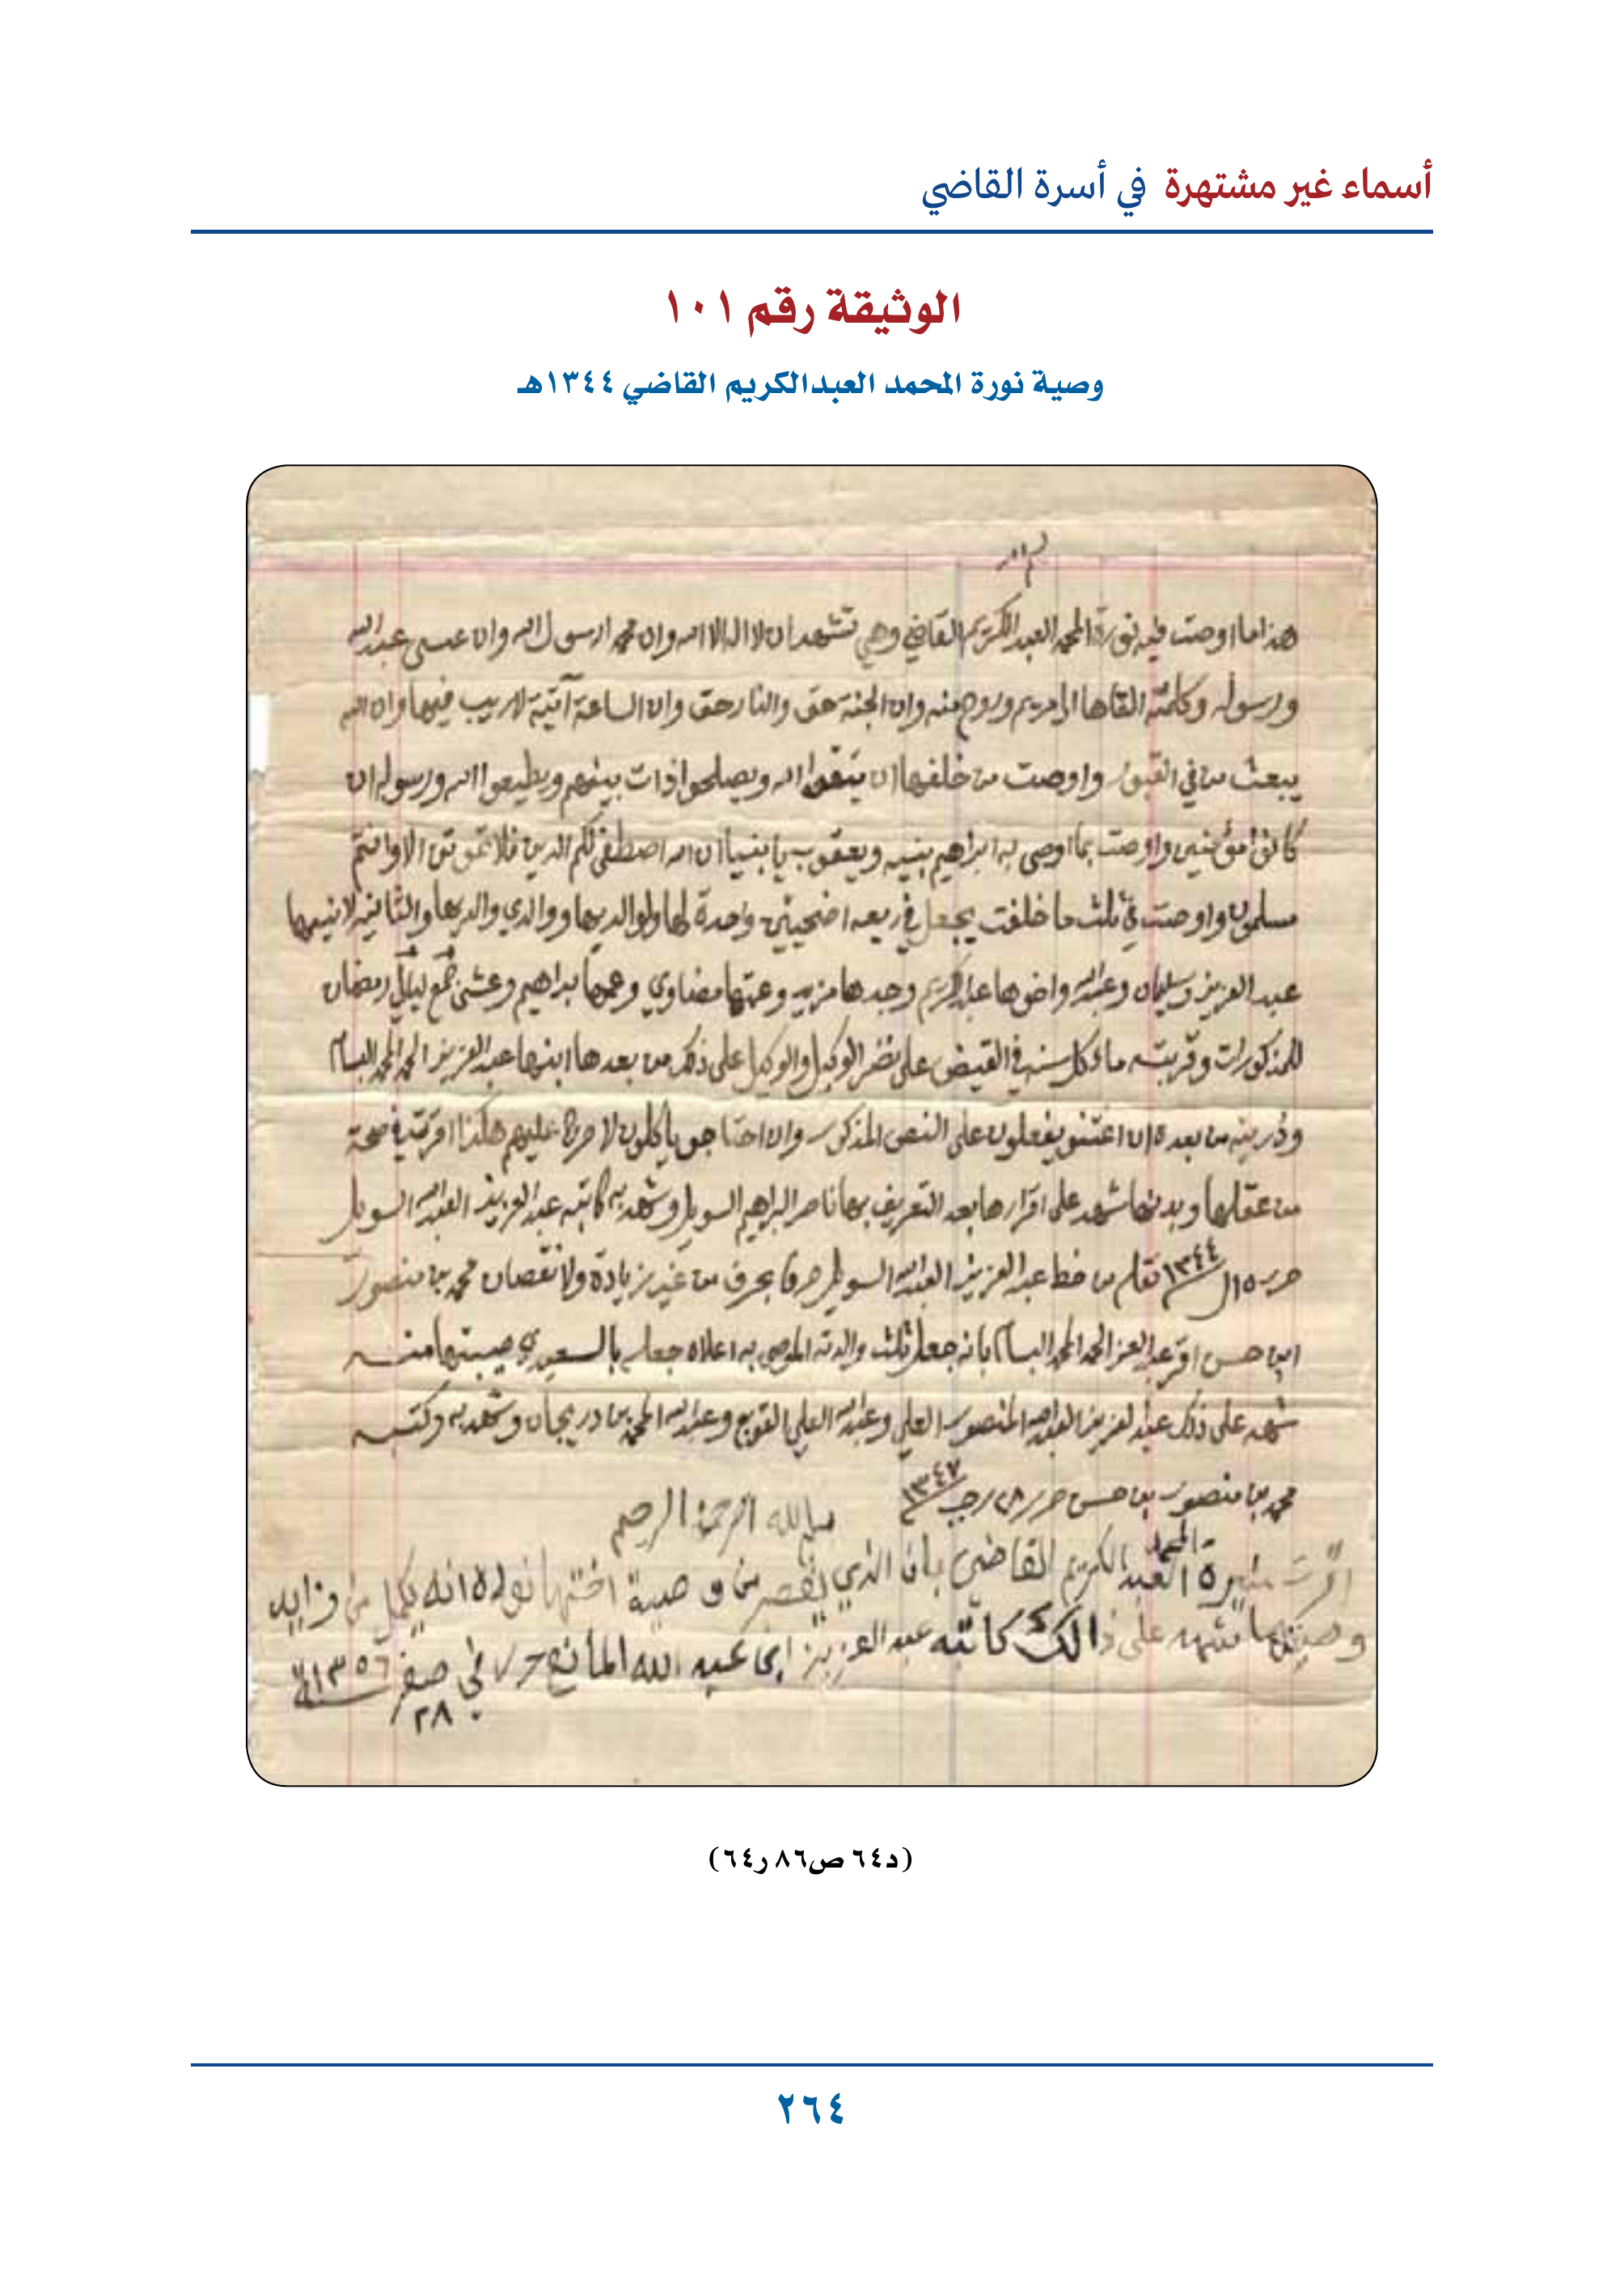 أسماء غير مشتهرة في أسرة القاضي
الوثيقة رقم ١٠١
وصية نورة المحمد العبدالكريم القاضي ١٣٤٤هـ
هذا ما اوصت فيه نورة المحمد العبد الكريم القاضي وهي تشهد ان لا اله الا الله وان محمد ارسول الله وان عيسى عبد الله
ورسوله وكلمته القاها الى مريم وروح منه وان الجنة حق والنار حق وان الساعة آتية لا ريب فيها وان الله
يبعث من في القبور واوصت من خلفها ان يتقوا الله ويصلحوا ذات بينهم ويطيعوا الله ورسوله ان
كانوا مؤمنين واوصت بما اوصى به ابراهيم بنيه ويعقوب يا بنيا ان الله اصطفى لكم الدين فلا تموتن الا وانتم
مسلمون واوصت في ثلث ما خلفت يجعل في ريعه اضحيتين واحدة لها ولوالديها ووالدي والديها والثانيه لابنيها
عبد العزيز وسليمان وعبد الله واخوها عبد الكريم وجدها مزيد وعمتها مضاوي وعمها ابراهيم وعشى جمع ليال رمضان
للمذكورات وقربة ماء كل سنه في القيض على نضر الوكيل والوكيل على ذلك من بعدها ابنها عبد العزيز المحمد البسام
وذريته من بعده ان اغتنو يفعلون على النص المذكور وان احتاجو ياكلون لا حرج عليهم هكذا اقرت في صحة
من عقلها وبدنها شهد على اقرارها بعد التعريف بها ناصر البراهيم السويل وشهد به كاتبه عبد العزيز العبد الله السويل
حرر ١٥ ل ١٣٤٤ نقله من خط عبد العزيز العبد الله السويل حرفا بحرف من غير زيادة ولا نقصان محمد بن منصور
ابن حسن اقر عبد العزيز المحمد البسام بانه جعل ثلث والدته الموصى به اعلاه جعله بالسعيدي صيبتها منه
شهد على ذلك عبد العزيز العبد الله المنصور العلي وعبد الله العلي القويع وعبد الله المحمد بن دريجان وشهد به وكتبه
محمد بن منصور بن حسن حرر ٢٨ رجب ١٣٤٧
بسم الله الرحمن الرحيم
اقرت منيرة المحمد العبد الكريم القاضي بان الذي يقصر من وصية اختها نوره انه يكمل من زايد
وصيتها شهد على ذالك كاتبه عبد العزيز ابن عبد الله المانع حرر في صفر ١٣٥٦
٢٨
(د٦٤ ص٨٦ ر٦٤)
٢٦٤